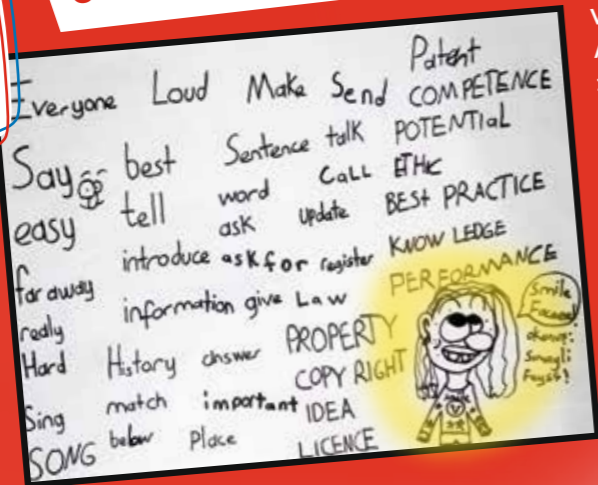 Everyone Loud Make Send Patent
COMPETENCE
Say best Sentence talk POTENTIAL
easy tell word CALL ETHIC
ask update BEST PRACTICE
far away introduce ask for register KNOW LEDGE
really information give Law PERFORMANCE
Hard History answer PROPERTY
COPY RIGHT
Sing match important IDEA
SONG below Place LICENCE
Smile